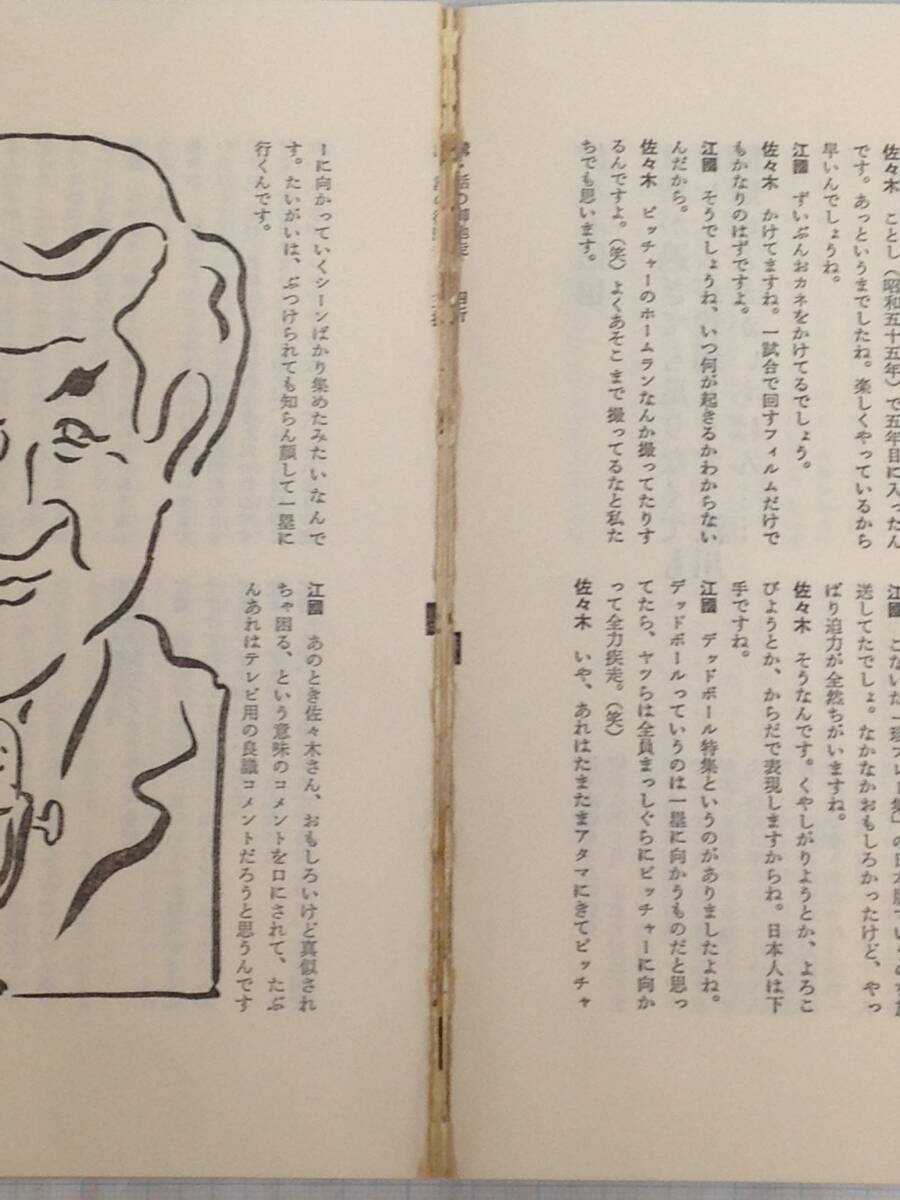 佐々木　ことし（昭和五十五年）で五年目に入ったん
です。あっというまでしたね。楽しくやっているから
早いんでしょうね。
江國　ずいぶんおカネをかけてるでしょう。
佐々木　かけてますね。一試合で回すフィルムだけで
もかなりのはずですよ。
江國　そうでしょうね、いつ何が起きるかわからない
んだから。
佐々木　ピッチャーのホームランなんか撮ってたりす
るんですよ。（笑）よくあそこまで撮ってるなと私た
ちでも思います。
江國　こないだ「珍プレー集」の日本版
送してたでしょ。なかなかおもしろかったけど、やっ
ぱり迫力が全然ちがいますね。
佐々木　そうなんです。くやしがりようとか、よろこ
びようとか、からだで表現しますからね。日本人は下
手ですね。
江國　デッドボール特集というのがありましたよね。
デッドボールっていうのは一塁に向かうものだと思っ
てたら、ヤツらは全員まっしぐらにピッチャーに向か
って全力疾走。（笑）
佐々木　いや、あれはたまたまアタマにきてピッチャ
ーに向かっていくシーンばかり集めたみたいなんで
す。たいがいは、ぶつけられても知らん顔して一塁に
行くんです。
江國　あのとき佐々木さん、おもしろいけど真似され
ちゃ困る、という意味のコメントを口にされて、たぶ
んあれはテレビ用の良識コメントだろうと思うんです